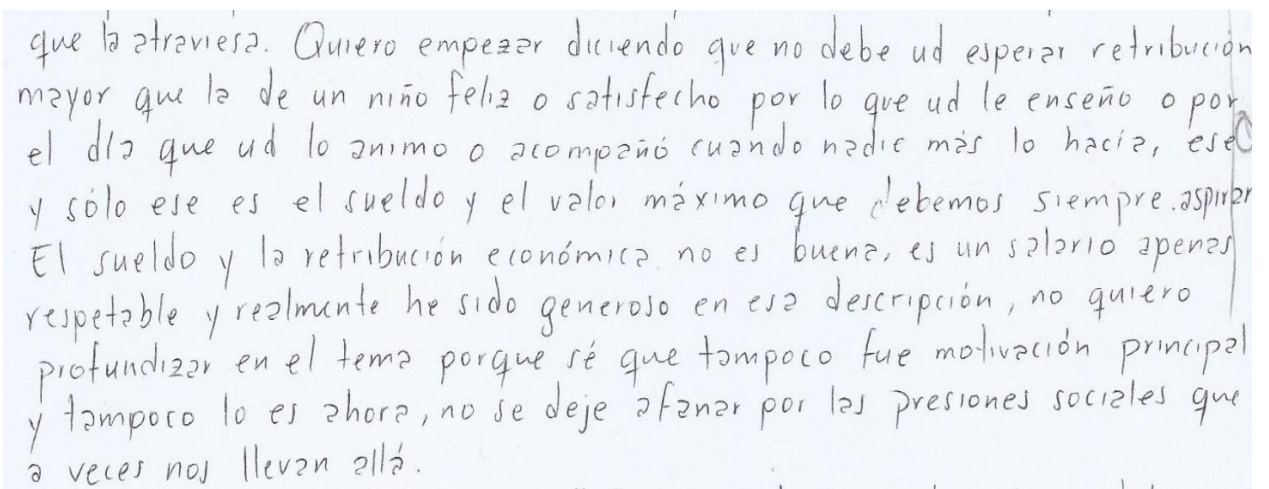 que la atraviesa. Quiero empezar diciendo que no debe ud esperar retribución
mayor que la de un niño feliz o satisfecho por lo que ud le enseño o por
el día que ud lo animo o acompañó cuando nadie más lo hacía, ese
y sólo ese es el sueldo y el valor máximo que debemos siempre aspirar
El sueldo y la retribución económica no es buena, es un salario apenas
respetable y realmente he sido generoso en esa descripción, no quiero
profundizar en el tema porque sé que tampoco fue motivación principal
y tampoco lo es ahora, no se deje afanar por las presiones sociales que
a veces nos llevan allá.